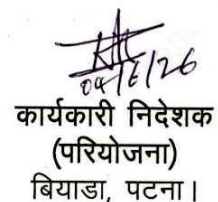 04/6/26
कार्यकारी निदेशक
(परियोजना)
बियाडा, पटना।